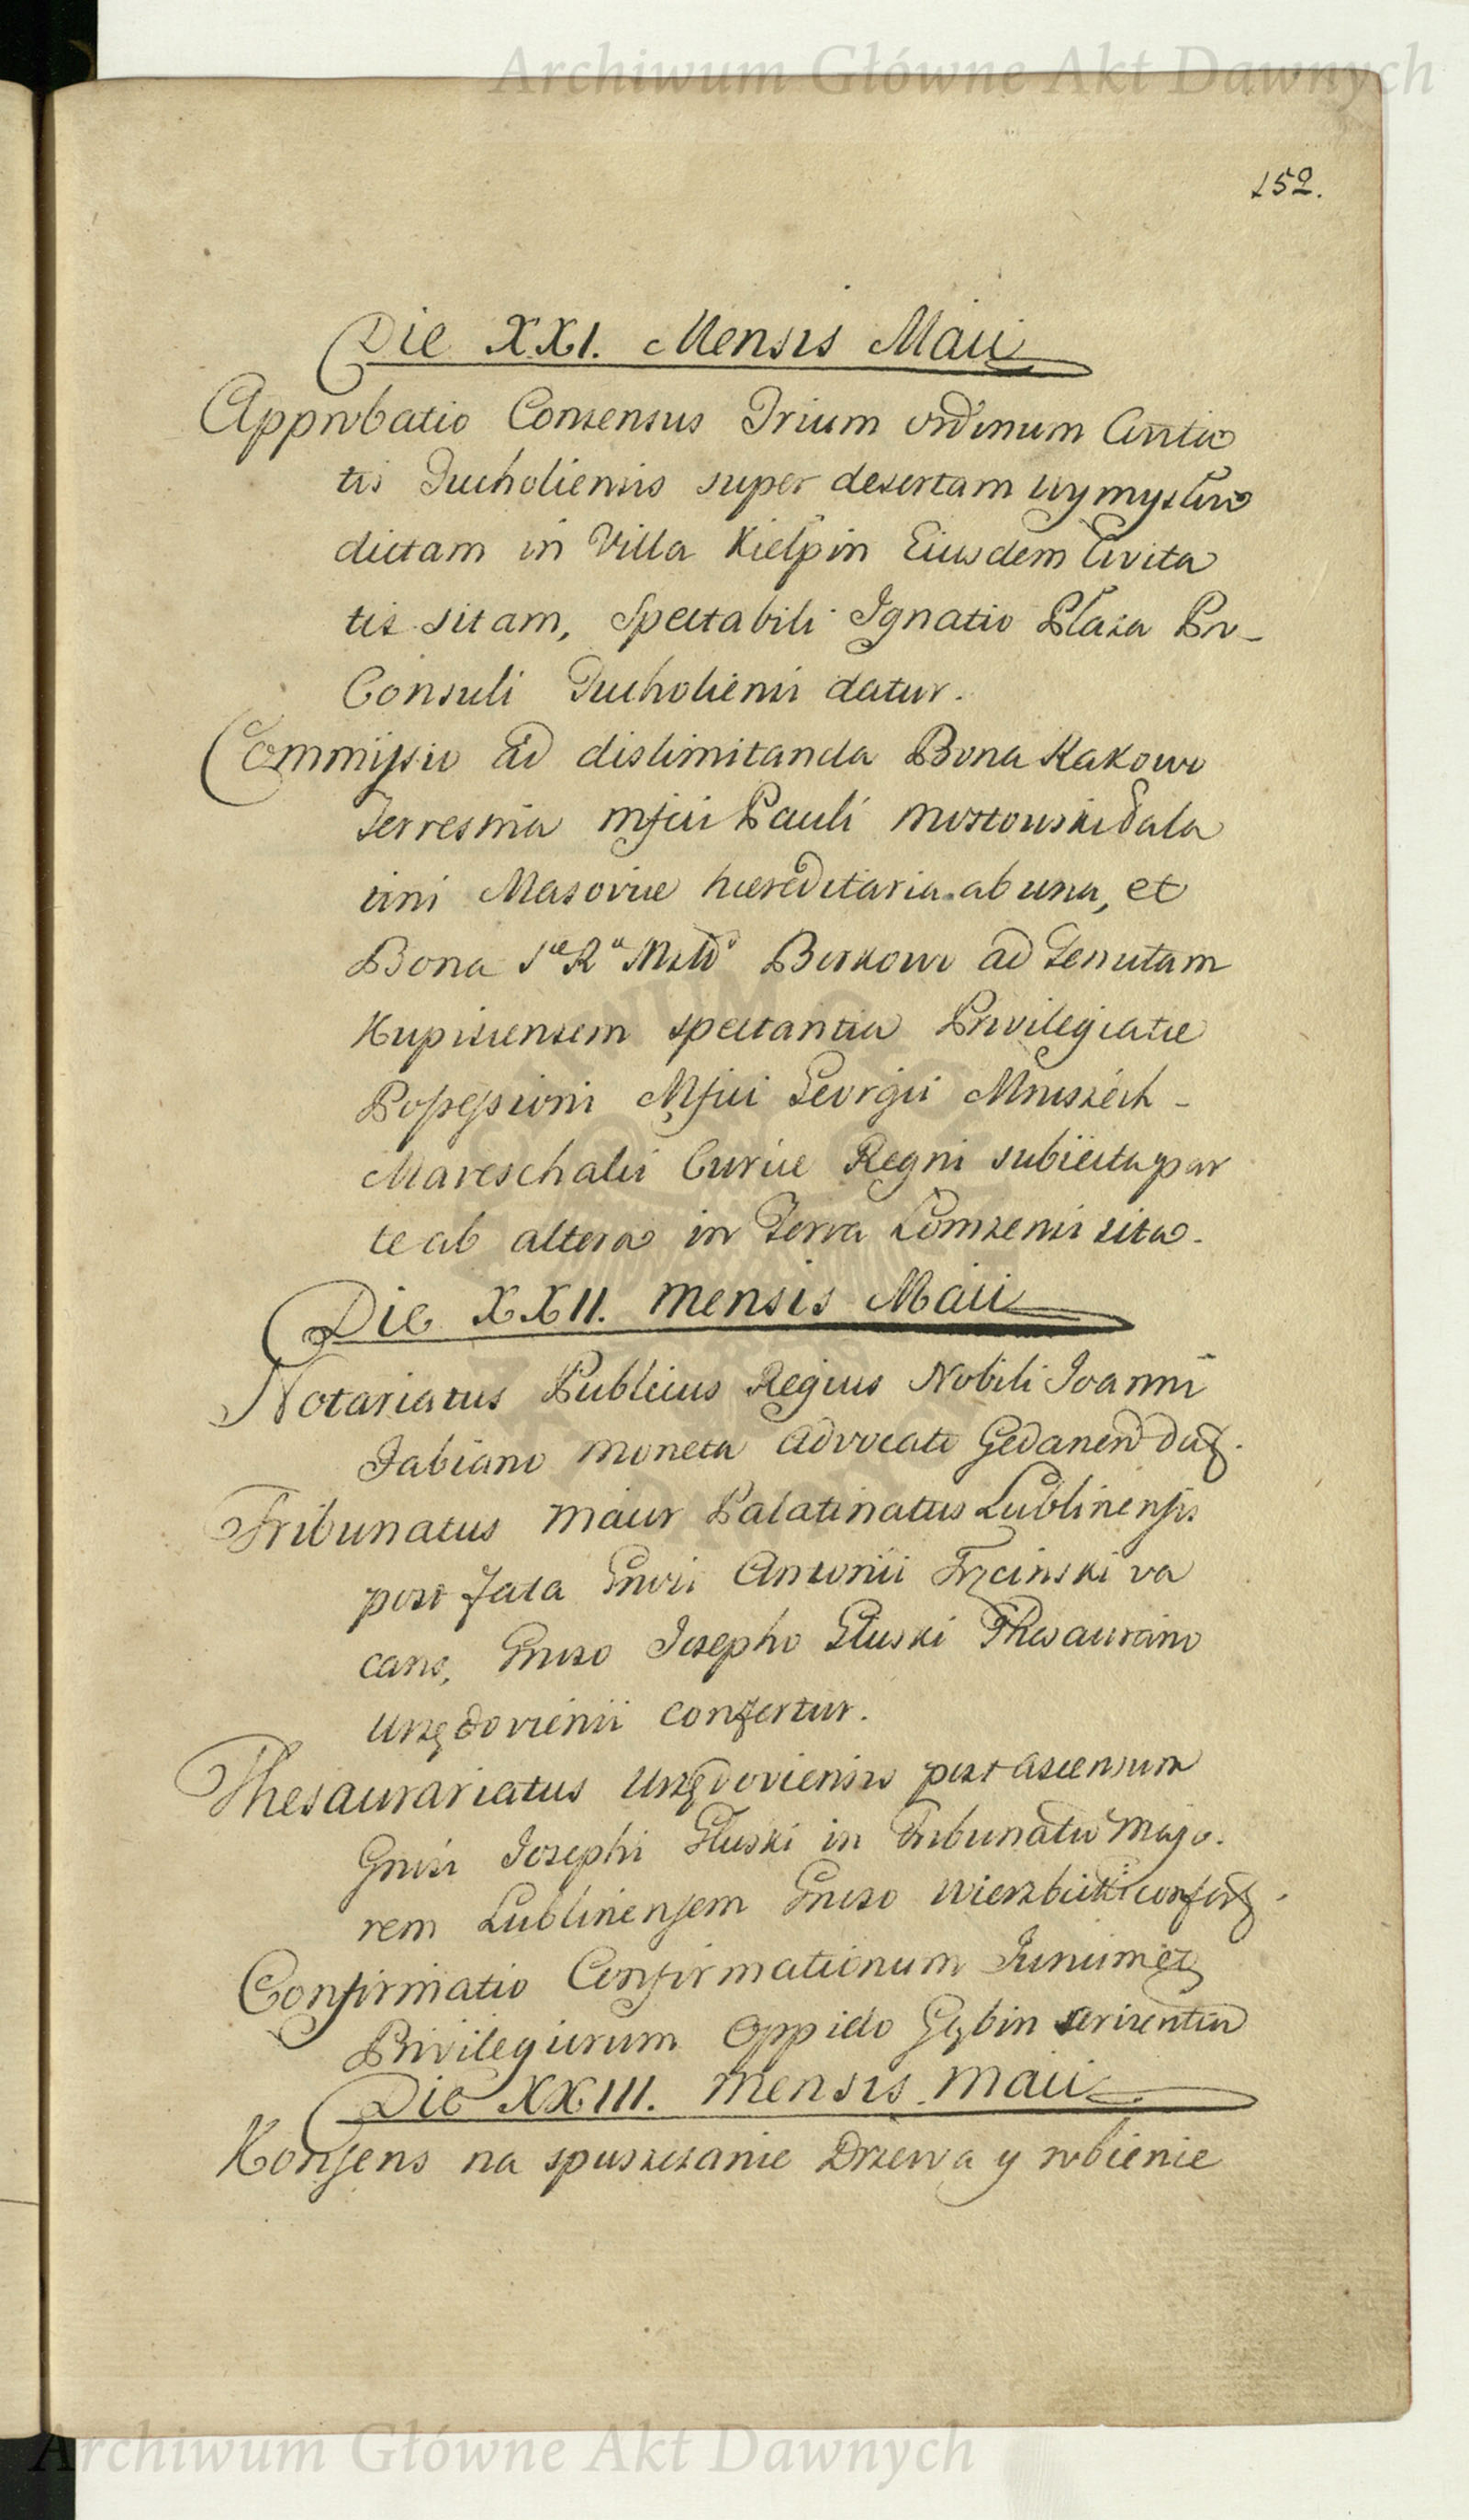 Archiwum Główne Akt Dawnych
152.
Die XXI. Mensis Maii
Approbatio Consensus Trium ordinum Civita
tis Tucholiensis super desertam Wymysłwo
dictam in Villa Kiełpin Eiusdem Civita
tis sitam, Spectabili Ignatio Płaza Pro-
Consuli Tucholiensi datur.
Commissio ad dislimitanda Bona Kakowo
Terrestria Mfici Pauli Mostowski Pala
tini Masoviae haereditaria ab una, et
Bona Sae Rae Mttis Borkowo ad Tenutam
Kupisiensem spectantia Privilegiatae
Possessioni Mfici Georgii Mniszech -
Mareschalii Curiae Regni subiecta par
te ab altera in Terra Łomzensi sita.
Die XXII. Mensis Maii
Notariatus Publicus Regius Nobili Joanni
Fabiano Moneta Advocato Gedanen datz.
Tribunatus Maior Palatinatus Lublinensis
post fata Gnosi Antonii Trzcinski va
cans, Gnoso Josepho Głuski Thesaurario
Urzędoviensi confertur.
Thesaurariatus Urzędoviensis post ascensum
Gnosi Josephi Głuski in Tribunatu Majo.
rem Lublinensem Gnoso Wierzbicki confertz.
Confirmatio Confirmationum Jurium etz
Privilegiorum Oppido Gębin servientiu
Die XXIII. Mensis Maii
Konsens na spuszczanie Drzewa y robienie
Archiwum Główne Akt Dawnych